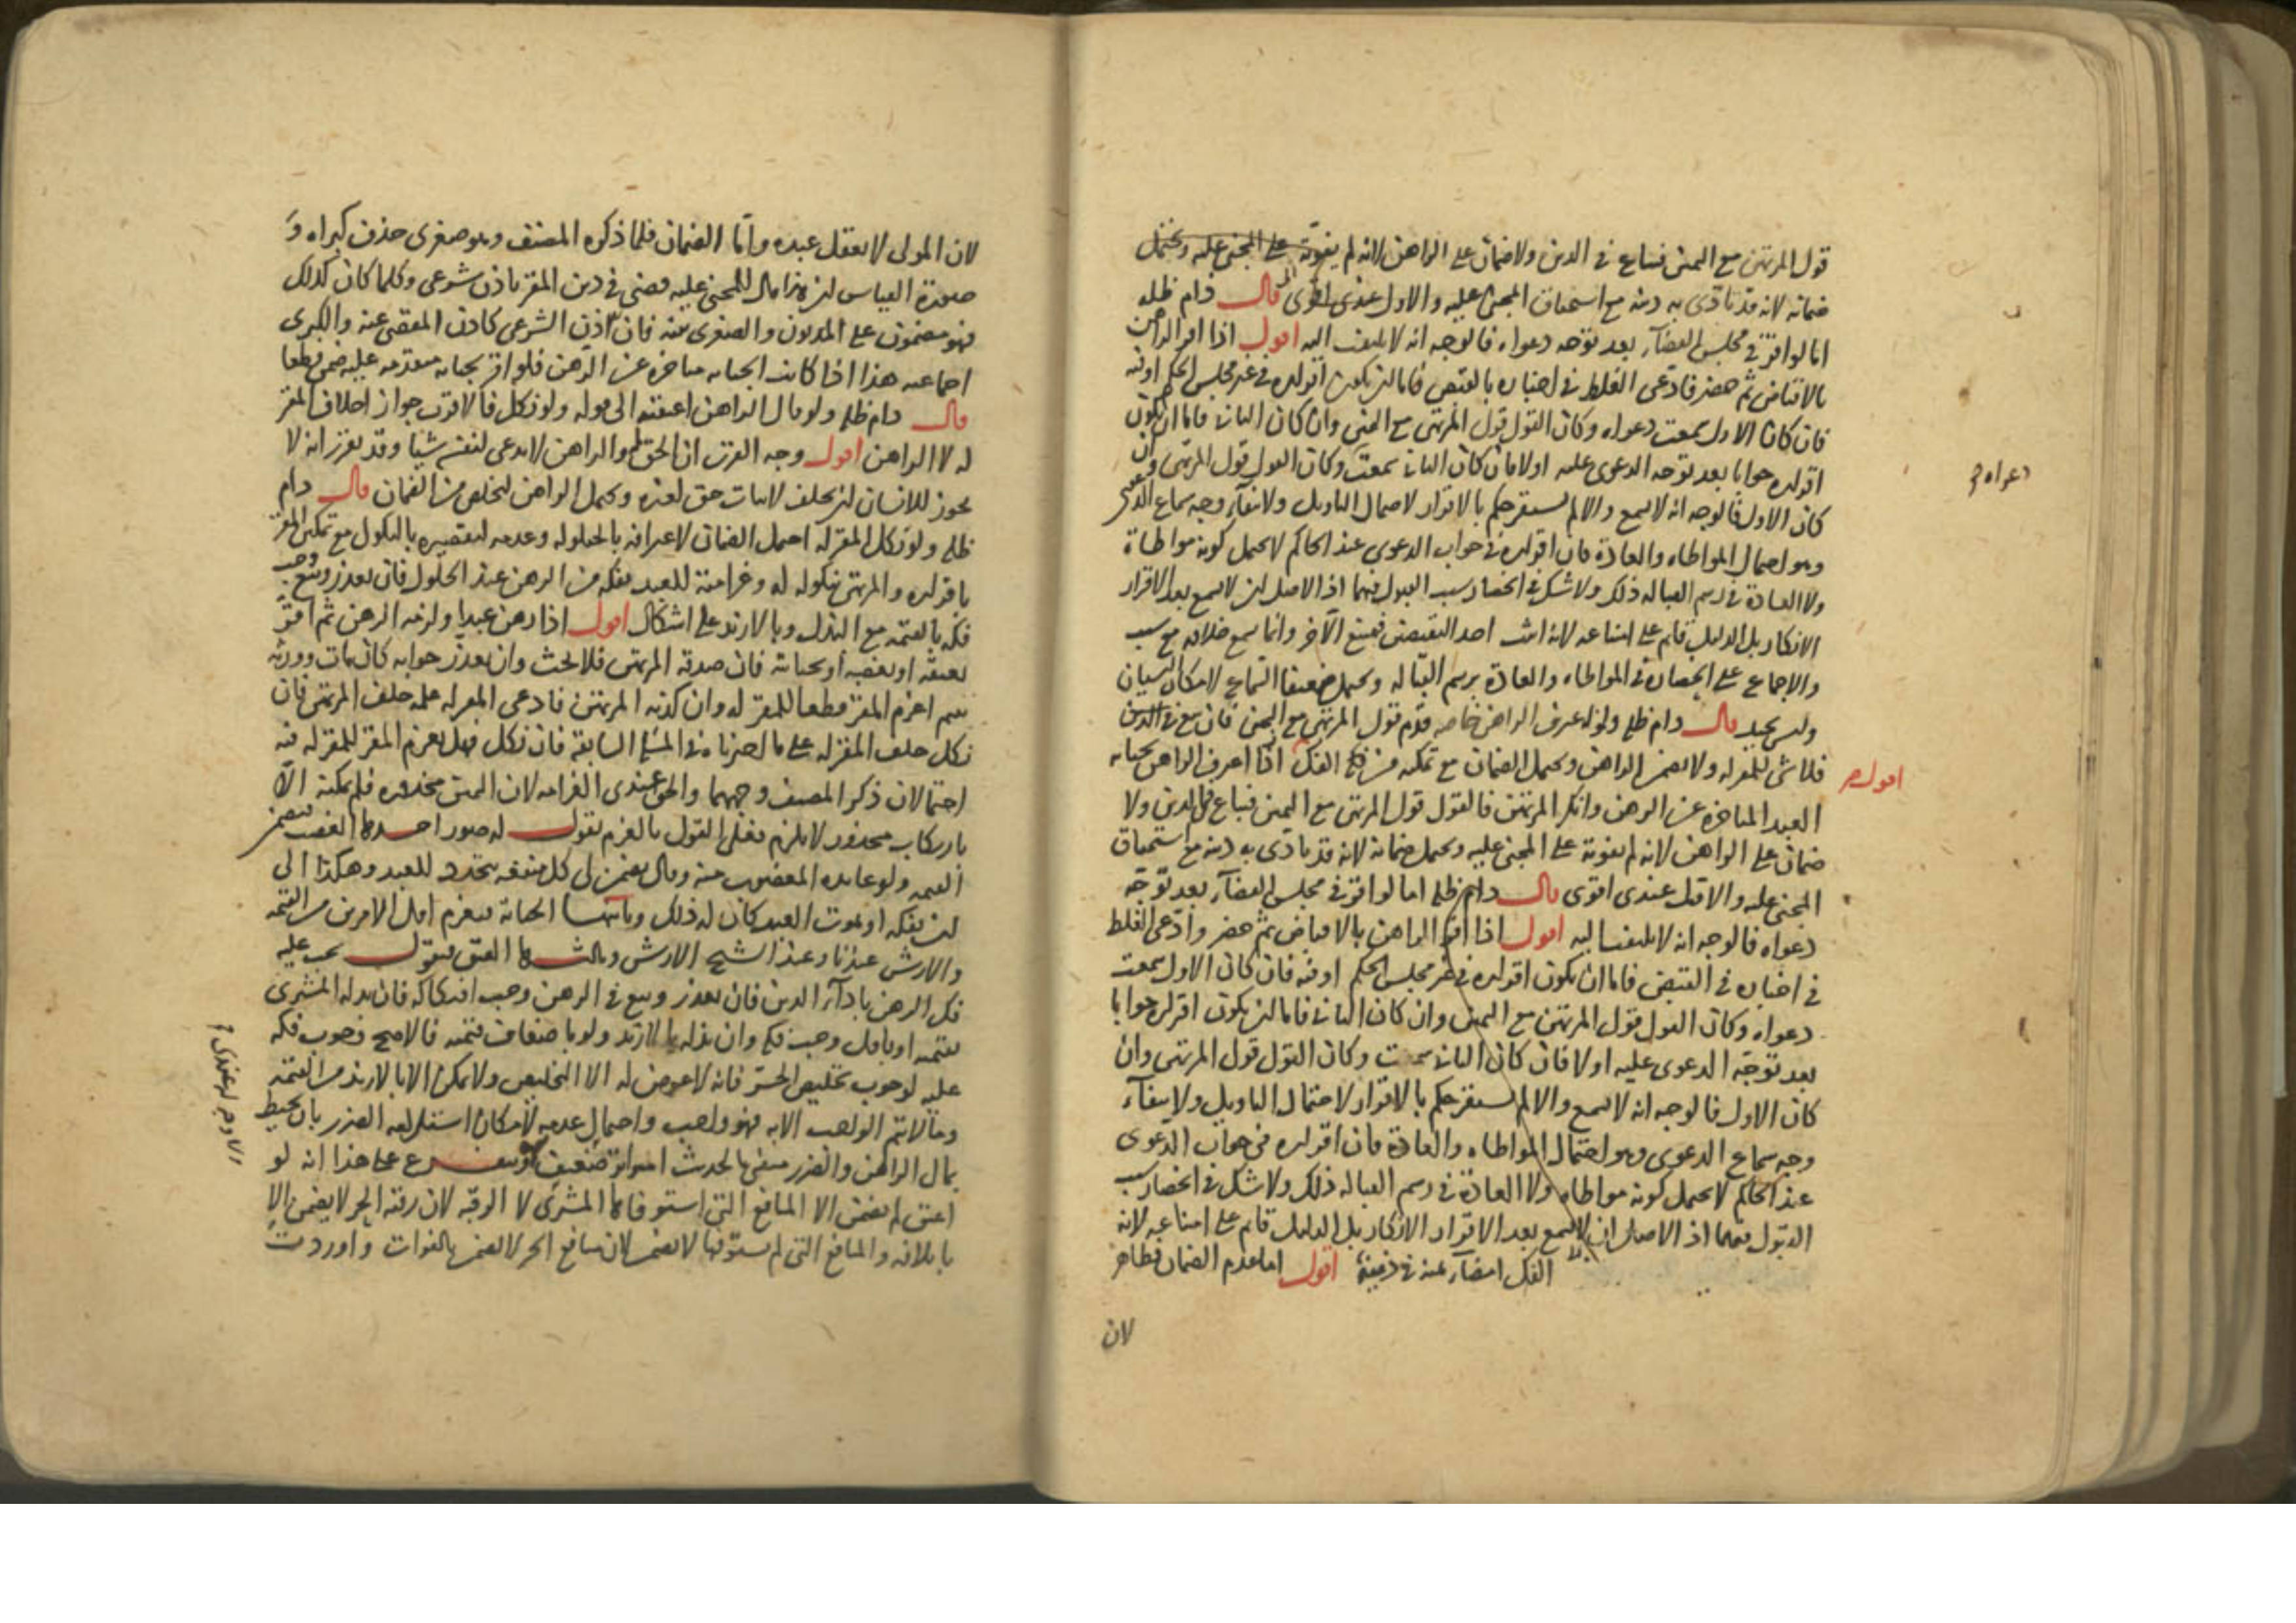 قول المرتهن مع اليمين فيباع في الدين ولا ضمان على الراهن لانه لم يفوته على المجني عليه ويحتمل
ضمانه لانه قد تادى به دينه مع استحقاق المجني عليه والاول عندي اقوى قال دام ظله
اما لو اقر في مجلس القضآء بعد توجه دعواه فالوجه انه لا يلتفت اليه اقول اذا اقر الراهن
بالاقباض ثم حضر فادعى الغلط في اخباره بالقبض فاما ان يكون اقراره في غير مجلس الحكم او فيه
فان كان الاول سمعت دعواه وكان القول قول المرتهن مع اليمين وان كان الثاني فاما ان يكون
اقراره جوابا بعد توجه الدعوى عليه اولا فان كان الثاني سمعت وكان القول قول المرتهن وان
كان الاول فالوجه انه لا يسمع والا لم يستقر حكم بالاقرار لاحتمال التاويل ولانتفآء وجه سماع الدعوى
وهو احتمال المواطاه والعادة فان اقراره في جواب الدعوى عند الحاكم لا يحتمل كونه مواطاة
ولا العادة في رسم القباله ذلك ولا شك في انحصار سبب القبول فيهما اذ الاصل ان لا يسمع بعد الاقرار
الانكار بل الدليل قائم على امتناعه لانه اثبت احد النقيضين فيمتنع الآخر وانما سمع خلافه مع سبب
والاجماع على انحصاره في المواطاه والعادة برسم القباله ويحتمل ضعيفا السماع لامكان النسيان
وليس بجيد قال دام ظله ولو اعترف الراهن خاصه قدم قول المرتهن مع اليمين فان بيع في الدين
فلا شي للمقر له ولا يضمن الراهن ويحتمل الضمان مع تمكنه من الفك اذا اعترف الراهن بجناية
اقول
العبد المتاخرة عن الرهن وانكر المرتهن فالقول قول المرتهن مع اليمين فيباع في الدين ولا
ضمان على الراهن لانه لم يفوته على المجني عليه ويحتمل ضمانه لانه قد تادى به دينه مع استحقاق
المجني عليه والاول عندي اقوى قال دام ظله اما لو اقر في مجلس القضآء بعد توجه
دعواه فالوجه انه لا يلتفت اليه اقول اذا اقر الراهن بالاقباض ثم حضر وادعى الغلط
في اخباره في القبض فاما ان يكون اقراره في غير مجلس الحكم او فيه فان كان الاول سمعت
دعواه وكان القول قول المرتهن مع اليمين وان كان الثاني فاما ان يكون اقراره جوابا
بعد توجه الدعوى عليه اولا فان كان الثاني سمعت وكان القول قول المرتهن وان
كان الاول فالوجه انه لا يسمع والا لم يستقر حكم بالاقرار لاحتمال التاويل ولانتفآء
وجه سماع الدعوى وهو احتمال المواطاه والعادة فان اقراره في جواب الدعوى
عند الحاكم لا يحتمل كونه مواطاه ولا العادة في رسم القباله ذلك ولا شك في انحصار سبب
القبول فيهما اذ الاصل ان لا يسمع بعد الاقرار الانكار بل الدليل قائم على امتناعه لانه
الفك اقول اما عدم الضمان فظاهر
لان
دعواه
لان المولى لا يعقل عبده واما الضمان فلما ذكره المصنف وهو صغرى حذف كبراه و
صورة القياس ان هذا مال للمجني عليه قضي في دين المقر باذن شرعي وكلما كان كذلك
فهو مضمون على المديون والصغرى بينه فان اذن الشرعي كاذن المقضي عنه والكبرى
اجماعيه هذا اذا كانت الجنايه متاخرة عن الرهن فلو اقر بجنايه متقدمه عليه ضمن قطعا
قال دام ظله ولو قال الراهن اعتقته الى قوله ولو نكل فالاقرب جواز احلاف المقر
له لا الراهن اقول وجه القرب ان الحق له والراهن لا يدعي لنفسه شيئا وقد تقرر انه لا
يجوز للانسان ان يحلف لاثبات حق لغيره ويحتمل الراهن ليخلص من الضمان قال دام
ظله ولو نكل المقر له احتمل الضمان لاعترافه بالحيلوله وعدمه لتقصيره بالنكول مع تمكين المقر
باقراره والمرتهن بنكوله له وغرامته للعبد بفكه من الرهن عند الحلول فان تعذر وبيع وجب
فكه بالقيمه مع البذل وبالازيد على اشكال اقول اذا رهن عبدا ولزمه الرهن ثم اقر
بعتقه او بغصبه او بجنايته فان صدقه المرتهن فلا بحث وان تعذر جوابه كان مات وورثه
يتيم اغرم المقر قطعا للمقر له وان كذبه المرتهن فادعى المقر له علمه حلف المرتهن فان
نكل حلف المقر له على ما اخترناه في المسئلة السابقة فان نكل فهل يغرم المقر للمقر له فيه
احتمالان ذكر المصنف وجههما والحق عندي الغرامه لان اليمين محذوره فلم يمكنه الا
بارتكاب محذور لا يلزم فعلى القول بالغرم نقول له صور احدها الغصب فيضمن
القيمه ولو عانده المغصوب منه وقال تضمن لي كل منفعه تتجدد للعبد وهكذا الى
ان يفكه او يموت العبد كان له ذلك وثانيها الجناية فيغرم اقل الامرين من القيمه
والارش عندنا وعند الشيخ الارش وثالثها العتق فنقول يجب عليه
فك الرهن بادآء الدين فان تعذر وبيع في الرهن وجب افتكاكه فان بذله المشتري
بقيمته او باقل وجب فكه وان بذله بالازيد ولو باضعاف قيمته فالاصح وجوب فكه
عليه لوجوب تخليص الحر فانه لا عوض له الا التخليص ولا يمكن الا بالازيد من القيمه
وما لا يتم الواجب الا به فهو واجب واحتمال عدمه لامكان استلزامه الضرر بان يحيط
بمال الراهن والضرر منفي بالحديث المتواتر ضعيف ويتفرع على هذا انه لو
اعتق لم يضمن الا المنافع التي استوفاها المشتري لا الرقبة لان رقبة الحر لا يضمن الا
باتلافه والمنافع التي لم يستوفها لا يضمن لان منافع الحر لا يضمن بالفوات واوردت